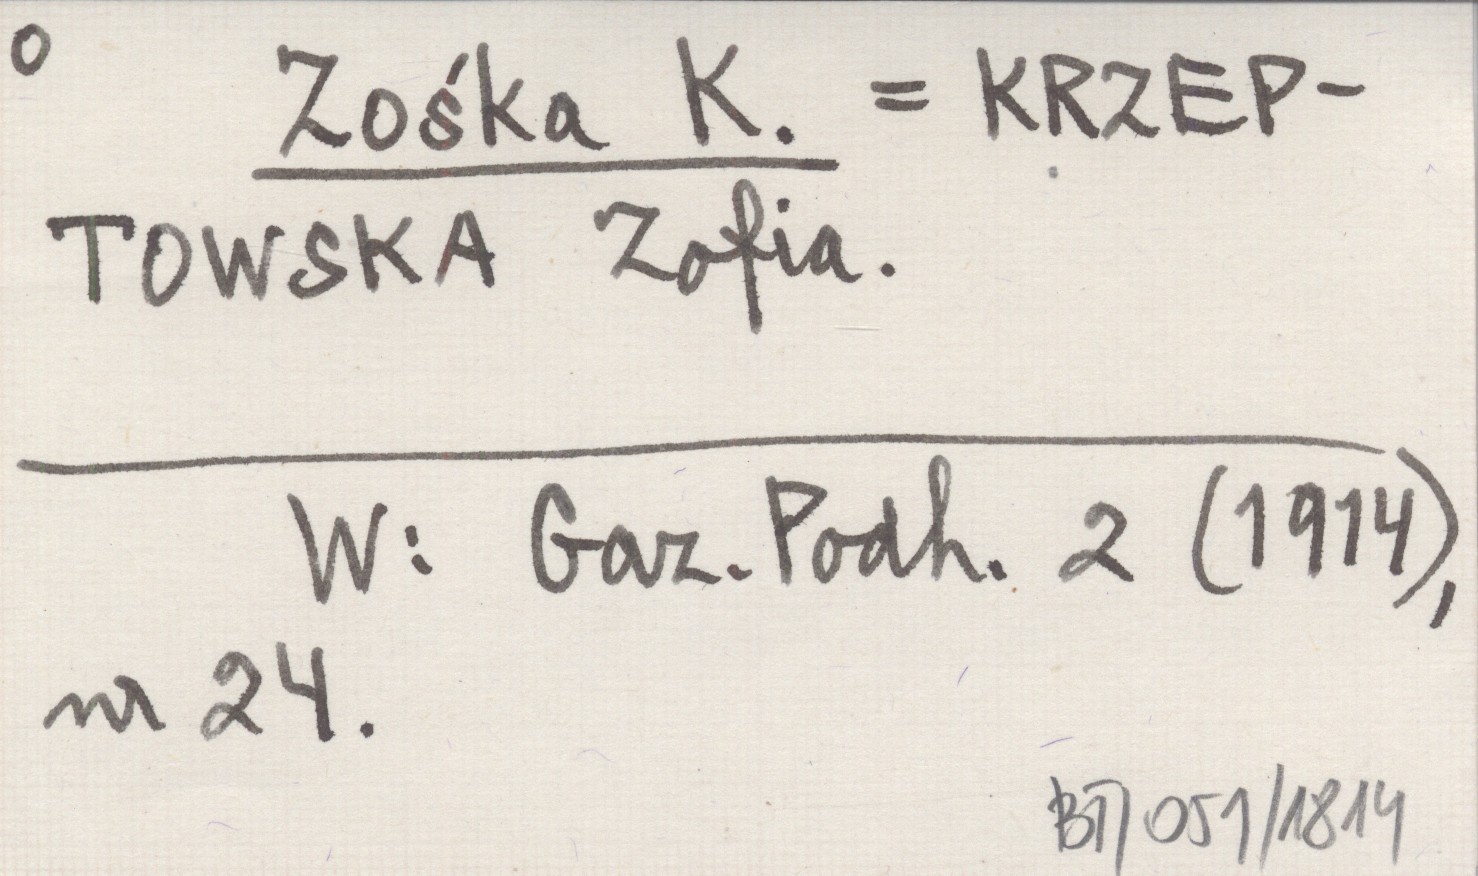 o Zośka K. = KRZEP-
TOWSKA Zofia.
W: Gaz. Podh. 2 (1914),
nr 24.
BT/051/1814